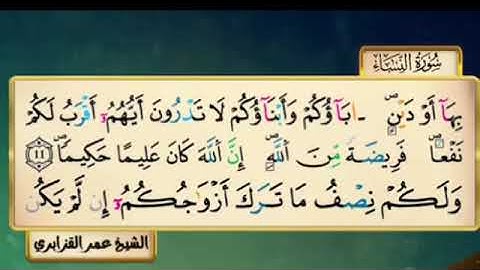 سُورَةُ النِّسَاءِ
بِهَآ أَوْ دَيْنٍ ۖ ءَابَآؤُكُمْ وَأَبْنَآؤُكُمْ لَا تَدْرُونَ أَيُّهُمُۥٓ أَقْرَبُ لَكُمْ
نَفْعًا ۖ فَرِيضَةً مِّنَ ٱللَّهِ ۖ إِنَّ ٱللَّهَ كَانَ عَلِيمًا حَكِيمًا ۖ ١١
وَلَكُمْ نِصْفُ مَا تَرَكَ أَزْوَٰجُكُمُۥٓ إِن لَّمْ يَكُن
الشيخ عمر القزابري